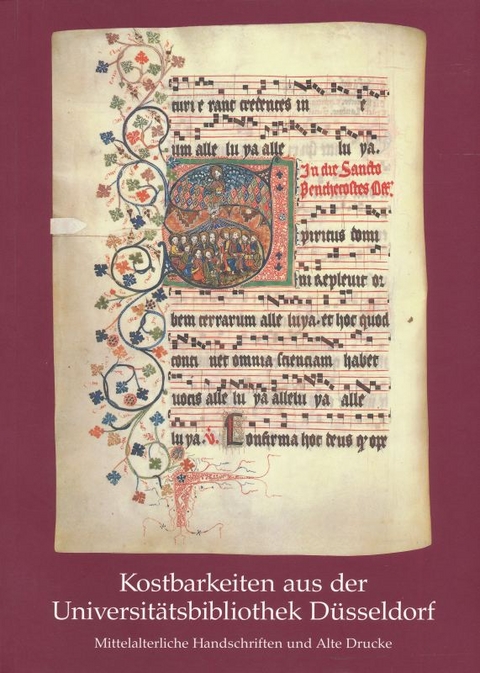 curi e rant credentes in e
um alle lu ya alle lu ya.
In die Sancto
Penthecostes Off.
Spiritus domi
ni repleuit or
bem terrarum alle luya. et hoc quod
conti net omnia scienciam habet
uocis alle lu ya allelu ya alle
lu ya. V. Confirma hoc deus q ope
Kostbarkeiten aus der
Universitätsbibliothek Düsseldorf
Mittelalterliche Handschriften und Alte Drucke